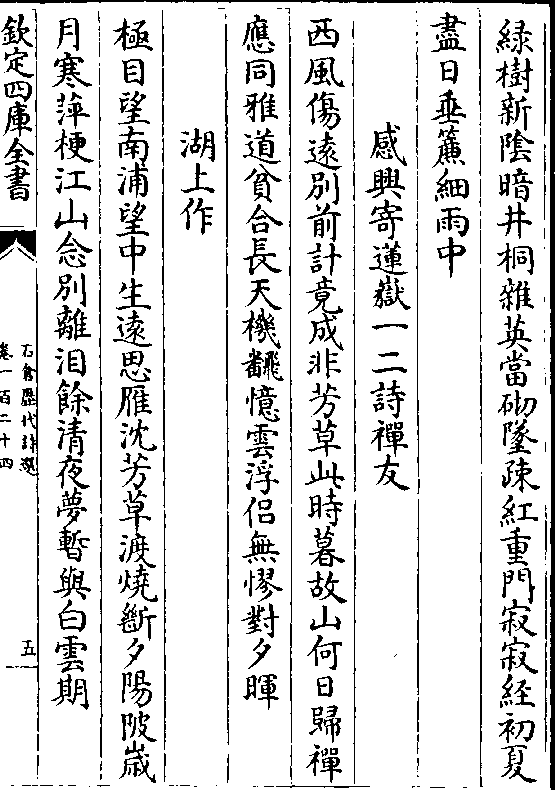 緑樹新陰暗井桐雜英當砌墜疎紅重門寂寂經初夏
盡日垂簾細雨中
感興寄蓮嶽一二詩禪友
西風傷遠別前計竟成非芳草此時暮故山何日歸禪
應同雅道貧合長天機飜憶雲浮侣無憀對夕暉
湖上作
極目望南浦望中生遠思雁沈芳草渡燒斷夕陽陂嵗
月寒萍梗江山念別離泪餘清夜夢暫與白雲期
欽定四庫全書
石倉歷代詩選
卷一百二十四
五